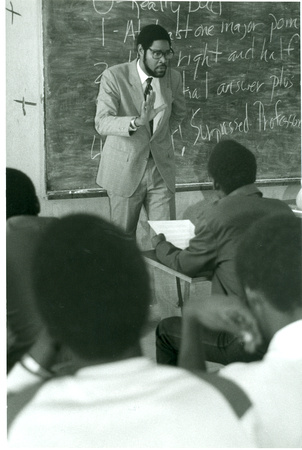 0 - Really bad
1 - At least one major point
2 right and half
tial answer plus
4 r, Surprised Professor